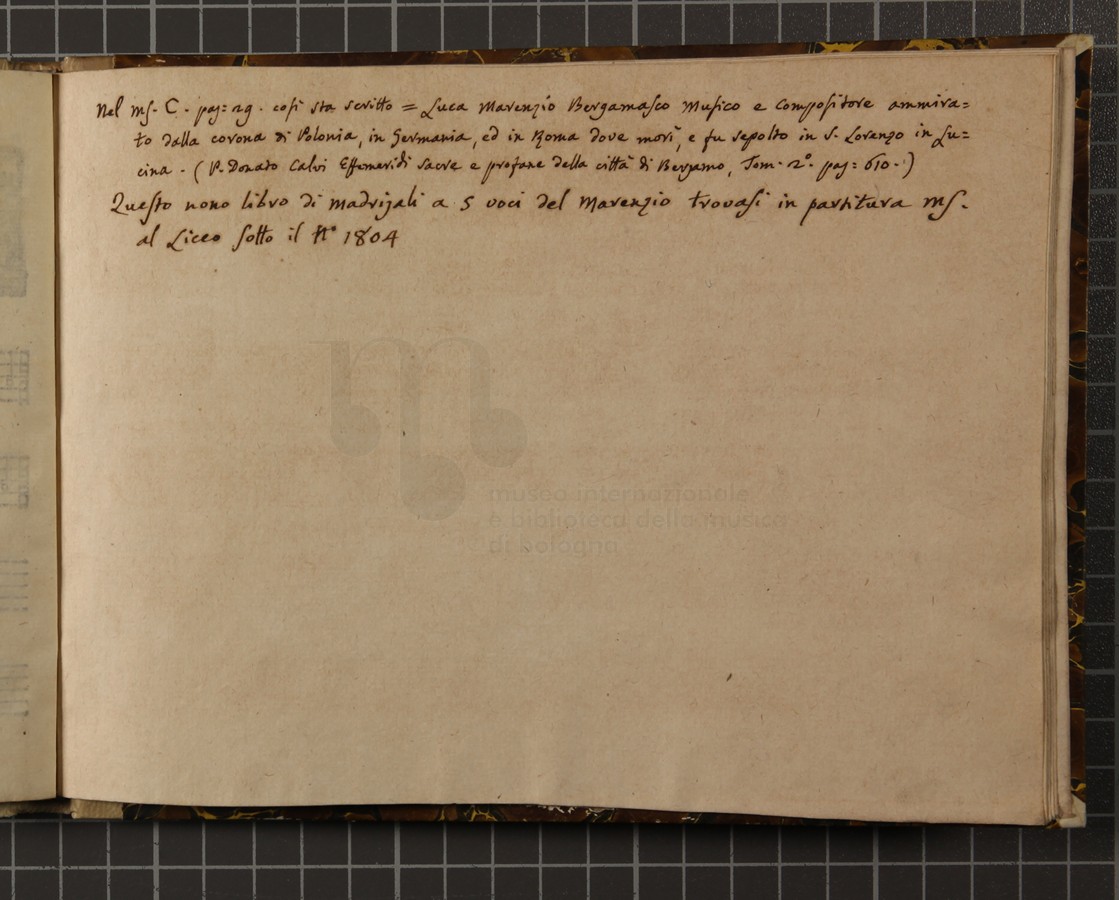 Nel mſ. C. pag: 29. coſì sta scritto = Luca Marenzio Bergamaſco Muſico e Compoſitore ammira=
to dalla corona di Polonia, in Germania, ed in Roma dove morì, e fu sepolto in S. Lorenzo in Lu=
cina. (P. Donato Calvi Effemeridi sacre e profane della città di Bergamo, Tom. 2º. pag: 610.)
Queſto nono libro di madrigali a 5 voci del Marenzio trovaſi in partitura mſ.
al Liceo ſotto il Nº 1804
museo internazionale
e biblioteca della musica
di bologna